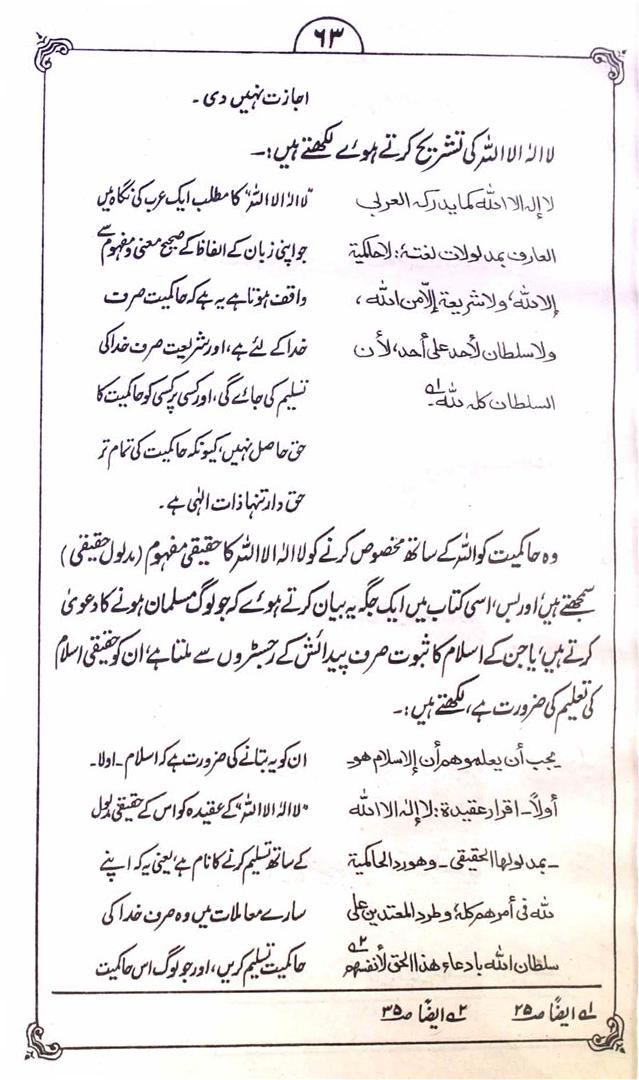 ۶۳
اجازت نہیں دی۔
لا الہ الا اللہ کی تشریح کرتے ہوئے لکھتے ہیں:۔
لا إله الا الله كما يدركه العربي
العارف بمدلولات لغته: لا حاكمية
إلا لله، ولا شريعة إلّا من الله،
ولا سلطان لأحد على أحد، لأن
السلطان كله لله۔ ۱ے
"لا الہ الا اللہ" کا مطلب ایک عرب کی نگاہ میں
جو اپنی زبان کے الفاظ کے صحیح معنی و مفہوم سے
واقف ہوتا ہے یہ ہے کہ حاکمیت صرف
خدا کے لئے ہے، اور شریعت صرف خدا کی
تسلیم کی جائے گی، اور کسی پر کسی کو حاکمیت کا
حق حاصل نہیں، کیونکہ حاکمیت کی تمام تر
حق دار تنہا ذات الٰہی ہے۔
وہ حاکمیت کو اللہ کے ساتھ مخصوص کرنے کو لا الہ الا اللہ کا حقیقی مفہوم (مدلول حقیقی)
سمجھتے ہیں اور بس، اسی کتاب میں ایک جگہ یہ بیان کرتے ہوئے کہ جو لوگ مسلمان ہونے کا دعویٰ
کرتے ہیں، یا جن کے اسلام کا ثبوت صرف پیدائش کے رجسٹروں سے ملتا ہے، ان کو حقیقی اسلام
کی تعلیم کی ضرورت ہے، لکھتے ہیں:۔
يجب أن يعلموهم أن الإسلام هو۔
أولاً۔ اقرار عقيدة: لا إله الا الله
۔بمدلولها الحقيقى۔ وهو رد الحاكمية
لله فى أمرهم كله، وطرد المعتدين على
سلطان الله بادعاء هذا الحق لأنفسهم ۲ے
ان کو یہ بتانے کی ضرورت ہے کہ اسلام۔ اولا۔
"لا الہ الا اللہ" کے عقیدہ کو اس کے حقیقی مدلول
کے ساتھ تسلیم کرنے کا نام ہے، یعنی یہ کہ اپنے
سارے معاملات میں وہ صرف خدا کی
حاکمیت تسلیم کریں، اور جو لوگ اس حاکمیت
۱ے ایضًا ص۲۵ ۲ے ایضًا ص۳۵